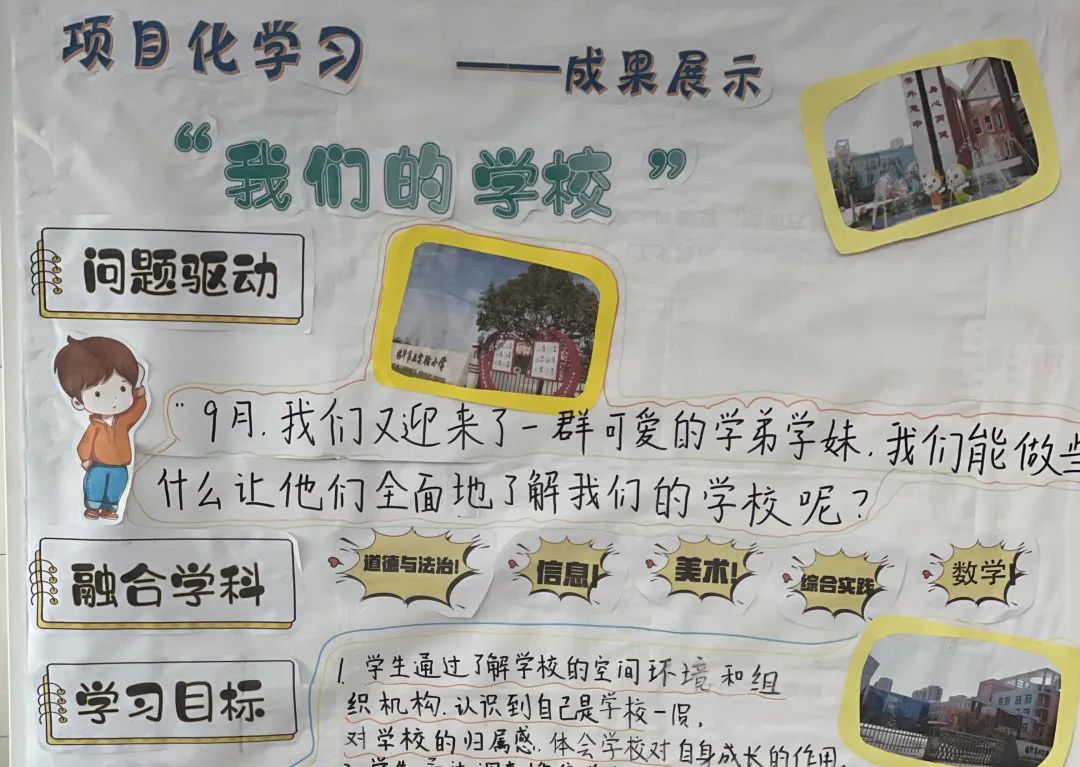 项目化学习
——成果展示
“我们的学校”
问题驱动
“9月,我们又迎来了一群可爱的学弟学妹,我们能做些
什么让他们全面地了解我们的学校呢?
融合学科
道德与法治!
信息!
美术!
综合实践
数学!
学习目标
1. 学生通过了解学校的空间环境和组
织机构,认识到自己是学校一员,
对学校的归属感,体会学校对自身成长的作用。